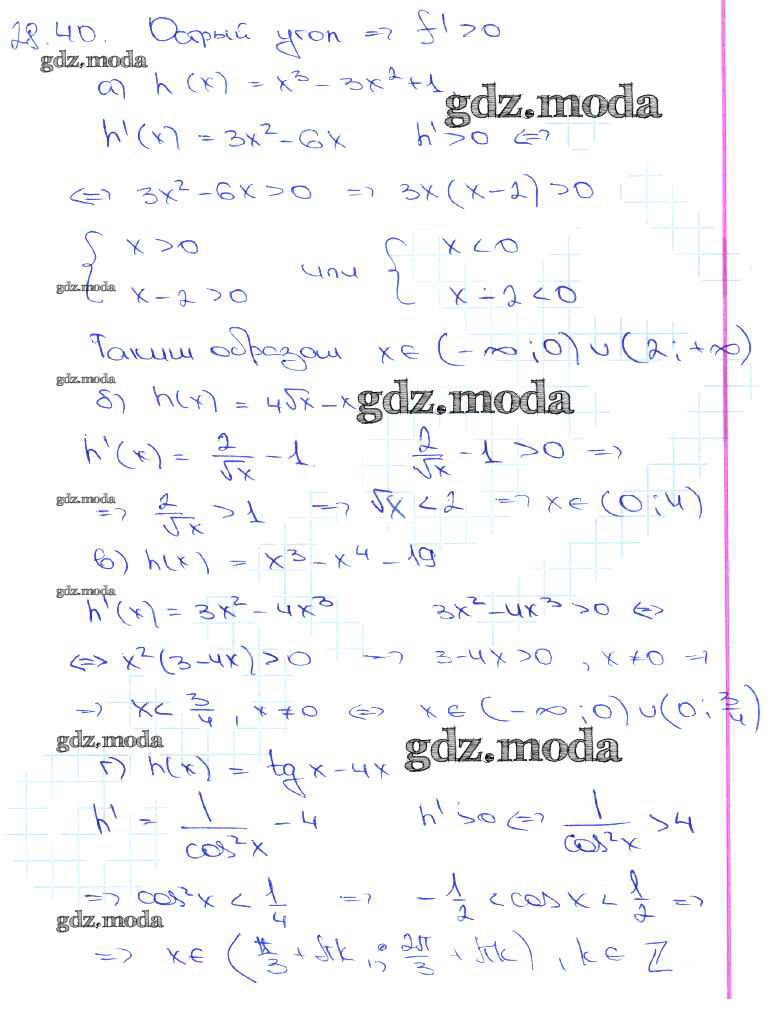 28.40. Острый угол => f' > 0
gdz.moda
а) h(x) = x³ - 3x² + 1
gdz.moda
h'(x) = 3x² - 6x h' > 0 <=>
<=> 3x² - 6x > 0 => 3x(x-2) > 0
{ x > 0 или { x < 0
gdz.moda
x - 2 > 0 x - 2 < 0
Таким образом x ∈ (-∞; 0) ∪ (2; +∞)
gdz.moda
б) h(x) = 4√x - x
gdz.moda
h'(x) = 2/√x - 1 2/√x - 1 > 0 =>
gdz.moda
=> 2/√x > 1 => √x < 2 => x ∈ (0; 4)
в) h(x) = x³ - x⁴ - 19
gdz.moda
h'(x) = 3x² - 4x³ 3x² - 4x³ > 0 <=>
<=> x²(3-4x) > 0 => 3-4x > 0, x ≠ 0 =>
=> x < 3/4, x ≠ 0 <=> x ∈ (-∞; 0) ∪ (0; 3/4)
gdz.moda
г) h(x) = tg x - 4x
gdz.moda
h' = 1/cos²x - 4 h' > 0 <=> 1/cos²x > 4
=> cos²x < 1/4 => -1/2 < cos x < 1/2 =>
gdz.moda
=> x ∈ (π/3 + πk; 2π/3 + πk), k ∈ Z